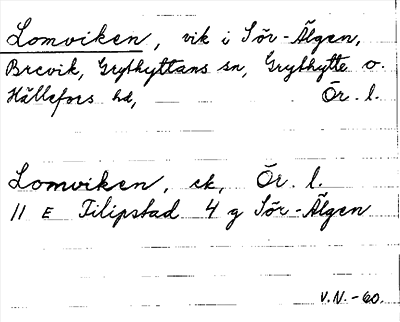 Lomviken, vik i Sör-Älgen,
Brevik, Grythyttans sn, Grythytte o.
Hällefors hd, Ör. l.
Lomviken, ek, Ör. l.
11 E Filipstad 4 g Sör-Älgen
V.N.-60.